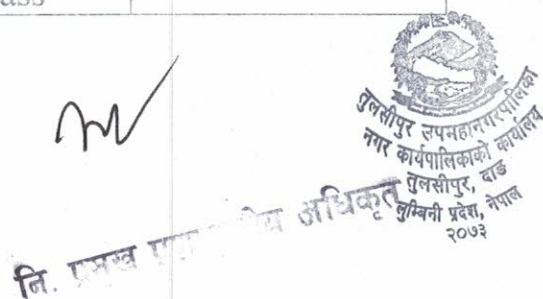 तुलसीपुर उपमहानगरपालिका
नगर कार्यपालिकाको कार्यालय
तुलसीपुर, दाङ
लुम्बिनी प्रदेश, नेपाल
२०७३
नि. प्रमुख अधिकृत